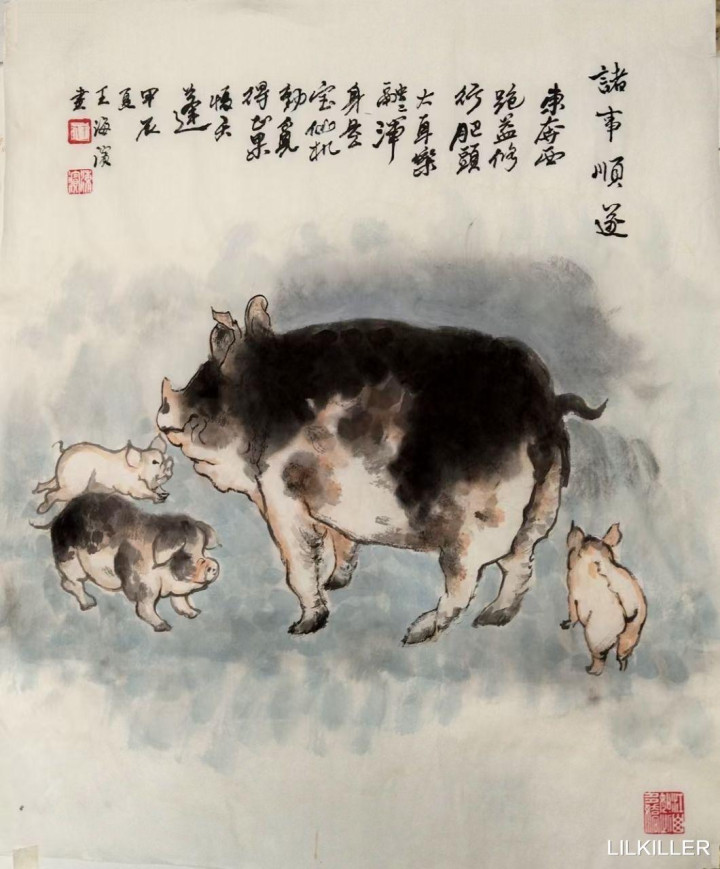 諸事順遂
東奔西
跑益修
行肥頭
大耳樂
融〻渾
身是
宝仙机
勤覓
得正果
悟天
蓬
甲辰
夏
王海濱
畫
LILKILLER